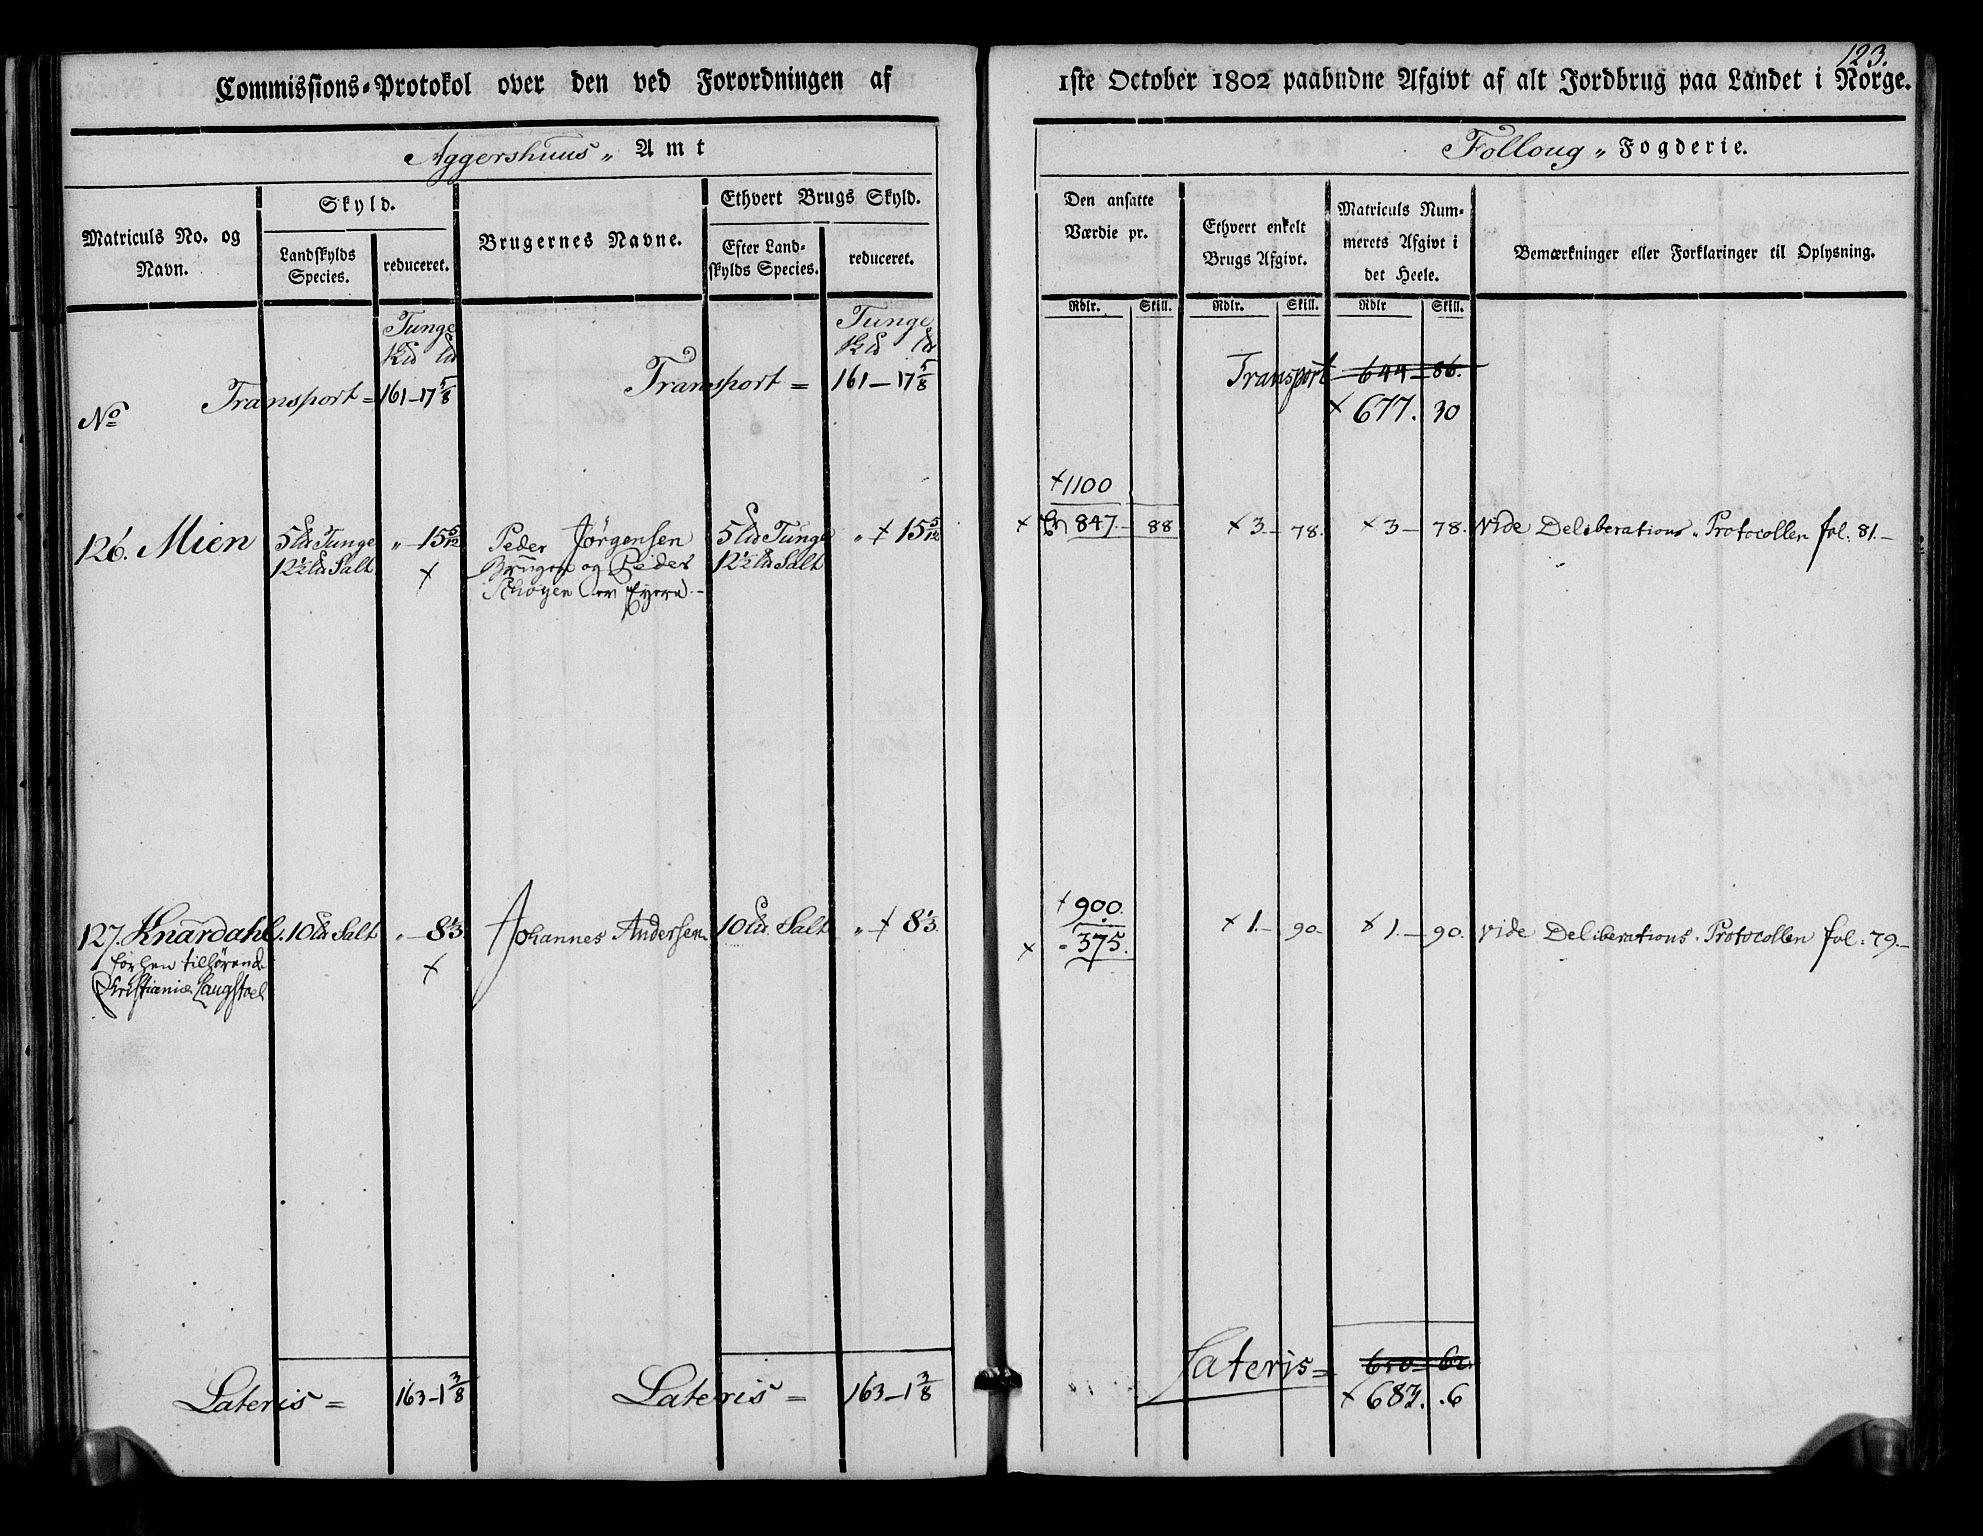 123.
Commissions-Protokol over den ved Forordningen af
1ste October 1802 paabudne Afgivt af alt Jordbrug paa Landet i Norge.
Aggershuus „ Amt
Folloug „ Fogderie.
Matriculs No. og Navn.
Skyld.
Landskylds Species.
reduceret.
Brugernes Navne.
Ethvert Brugs Skyld.
Efter Landskylds Species.
reduceret.
Den ansatte Værdie pr.
Ethvert enkelt Brugs Afgivt.
Matriculs Nummerets Afgivt i det Heele.
Bemærkninger eller Forklaringer til Oplysning.
Rdlr. Skill. Rdlr. Skill. Rdlr Skill.
Tunge
Tunge
Transport = 161-17 5/8
Transport = 161-17 5/8
Transport 644-86.
× 677. 30
No
+1100
126. Mien 5 Tunge „ 15 5/12 Peder Jørgensen 5 Tunge „ + 15 5/12
× 847.- 88 × 3.- 78. × 3- 78. Vide Deliberations „ Protocollen fol: 81.-
12½ Salt × Brugen og Peder 12½ Salt
Schøyen Eyere.-
+900.
127. Knardahl. 10 Salt „ 8 1/3 Johannes Andersen 10 Salt „ + 8 1/3.
× - 375. × 1.- 90- × 1.- 90. Vide Deliberations. Protocollen fol: 79.-
forhen tilhørende ×
Christiania Laugstoel
Lateris = 163-1 3/8
Lateris = 163-1 3/8
Lateris = 650-62.
× 683. .6